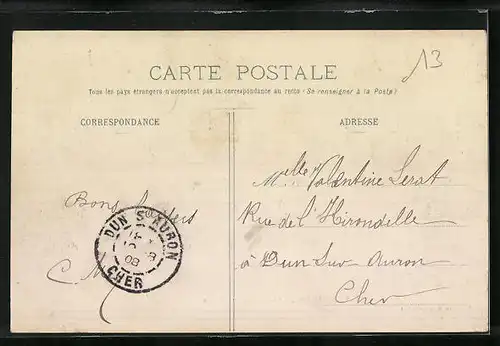 13
CARTE POSTALE
Tous les pays étrangers n'acceptent pas la correspondance au recto (Se renseigner à la Poste)
CORRESPONDANCE
ADRESSE
Bons baisers
C. M
DUN S AURON
08
CHER
Melle Valentine Lerat
Rue de l'Hirondelle
à Dun sur Auron
Cher